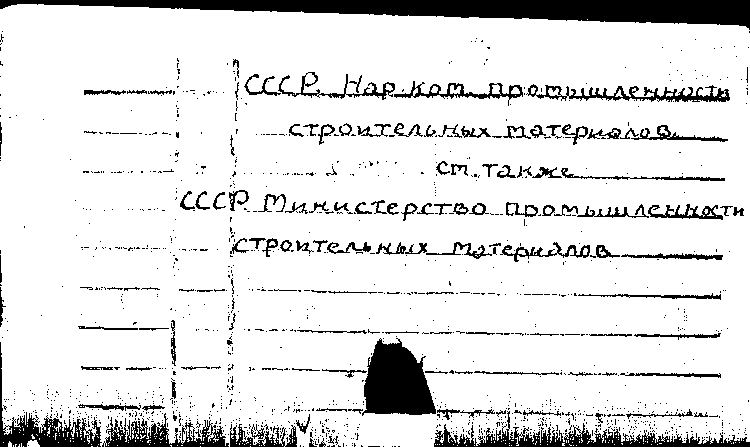 СССР. Нар. ком. промышленности
строительных материалов.
см. также
СССР. Министерство промышленности
строительных материалов